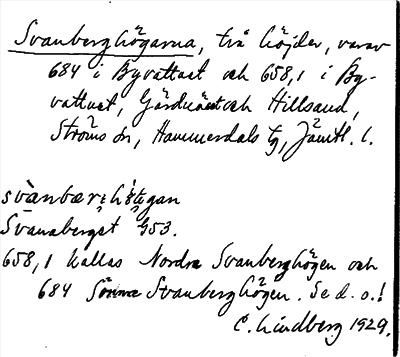 Svanberghögarna, två höjder, varav
684 i Byvattnet och 658,1 i By-
vattnet, Gärdnäset och Hillsand,
Ströms sn, Hammerdals tg, Jämtl. l.
svànbær
Svanaberget G53.
658,1 kallas Nordra Svanberghögen och
684 Sönnra Svanberghögen. Se d. o.!
C. Lindberg 1929.